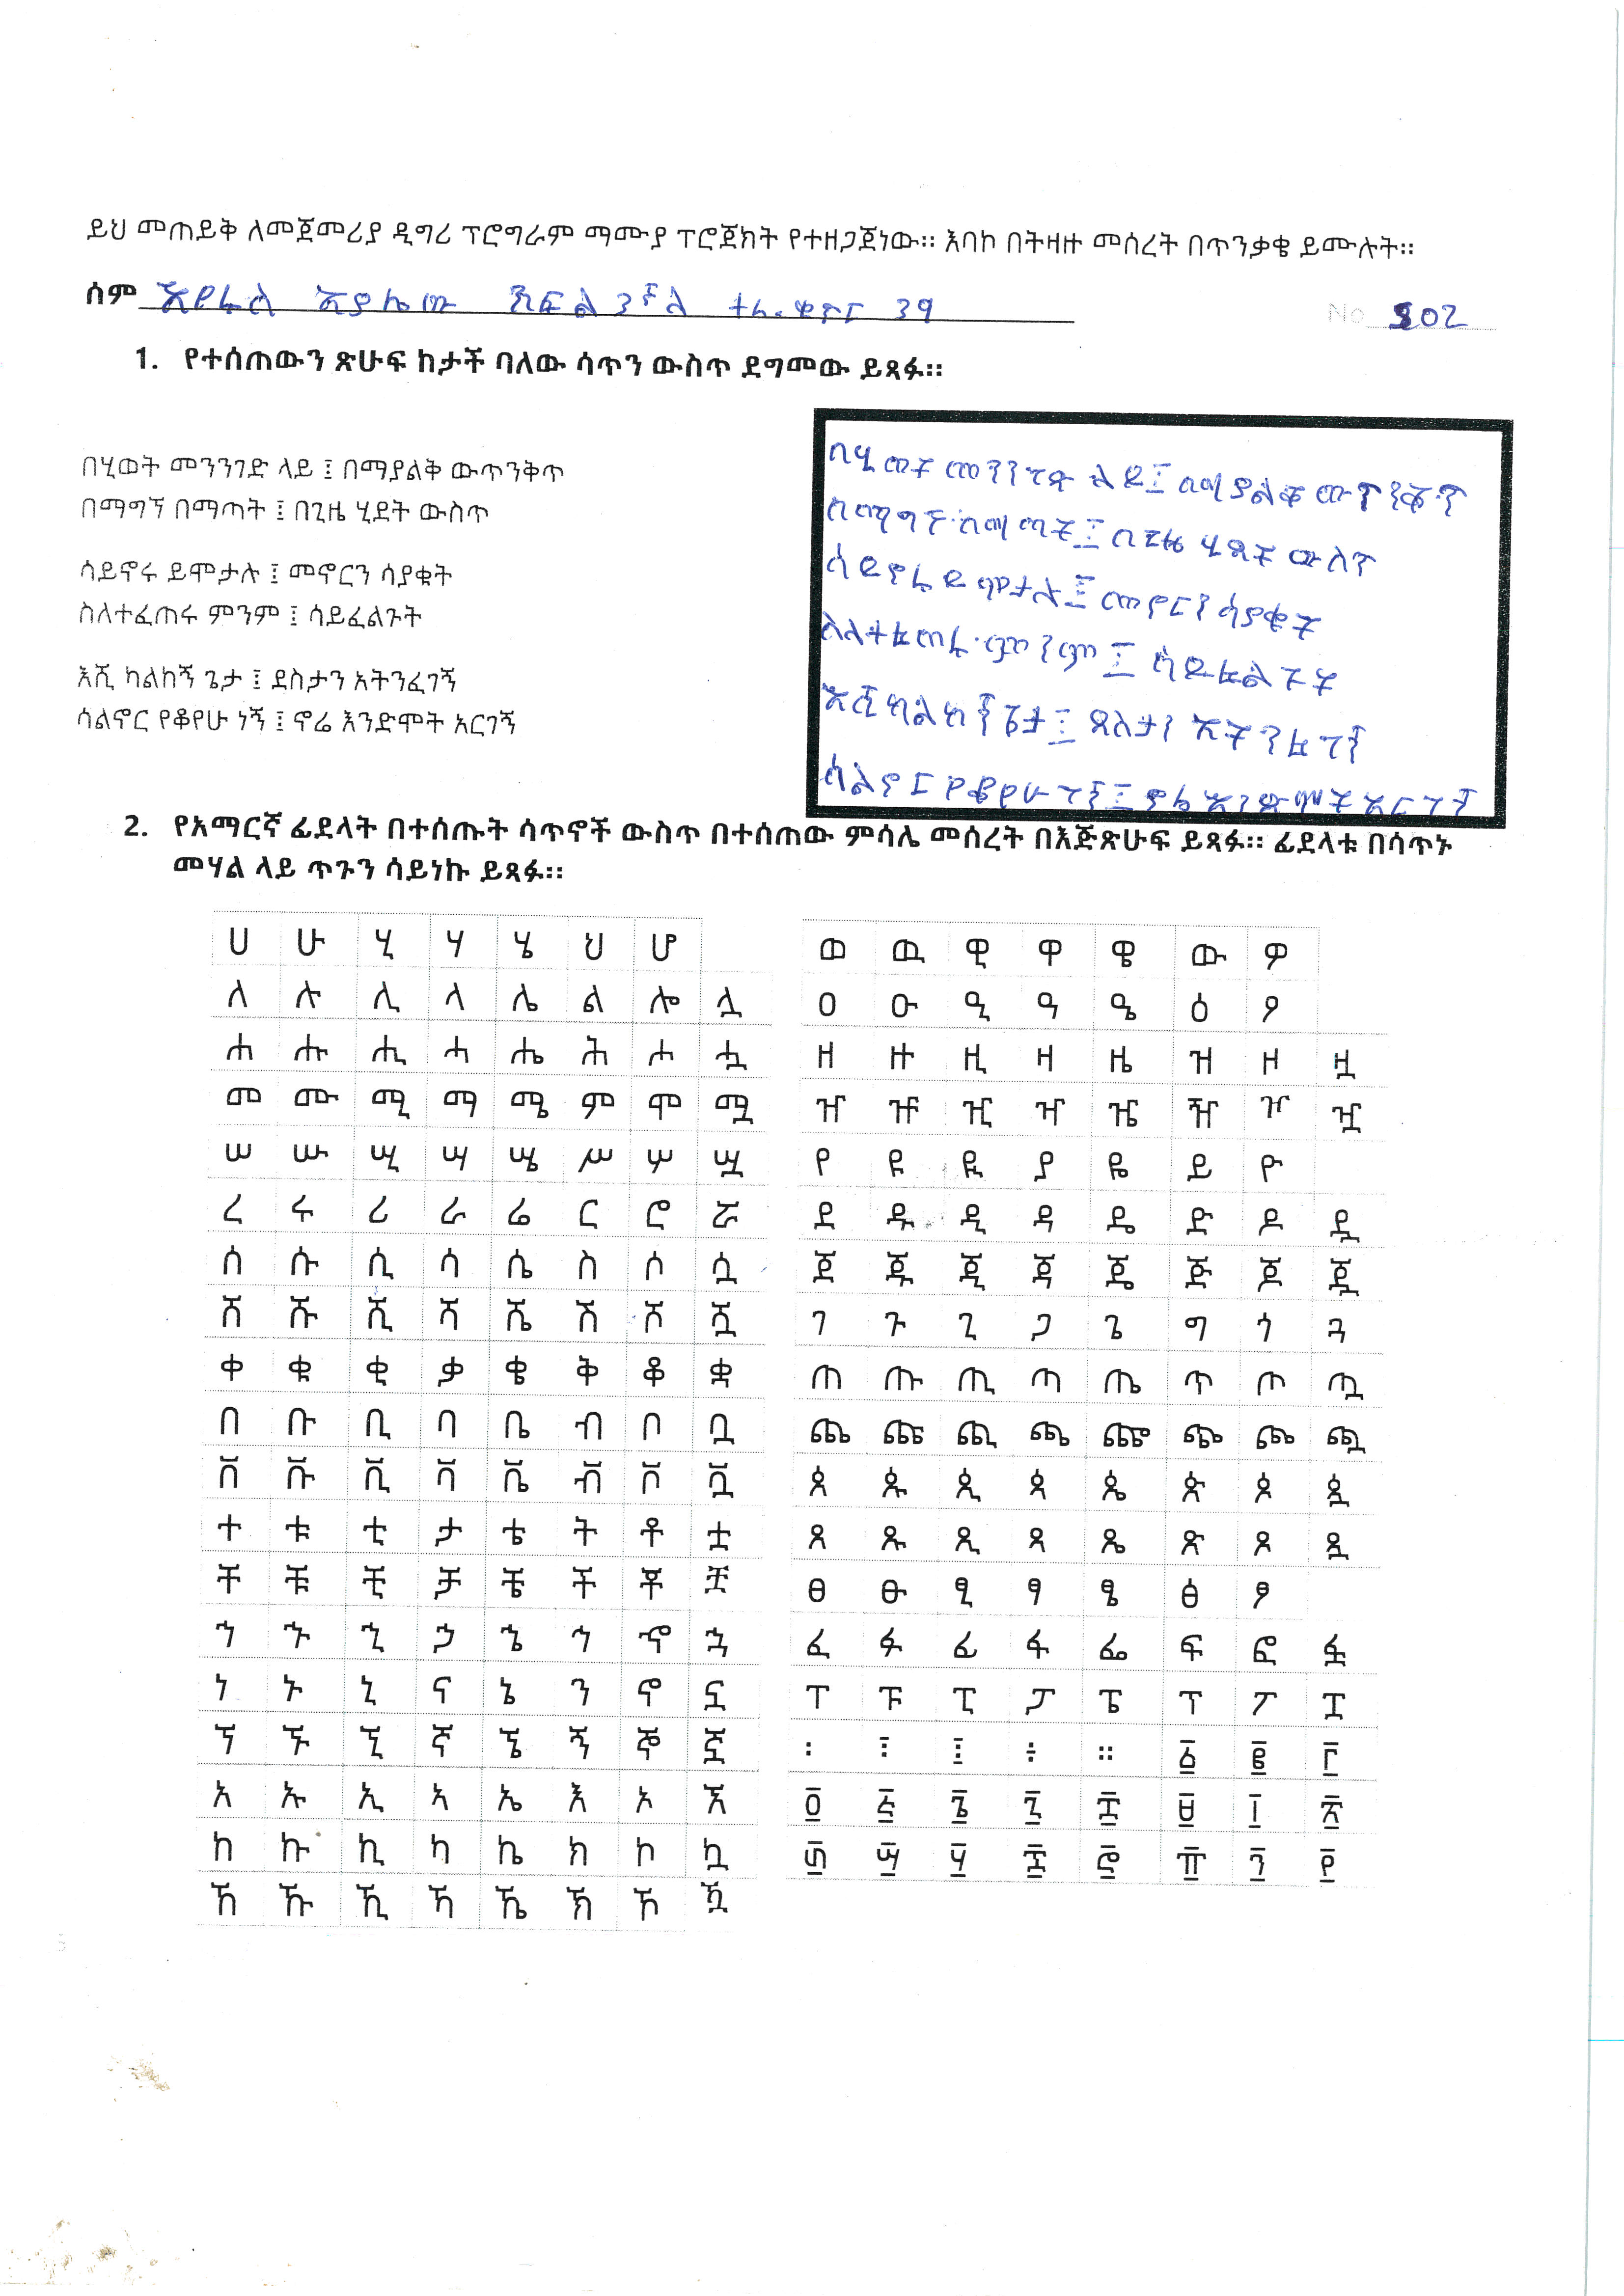 ይህ መጠይቅ ለመጀመሪያ ዲግሪ ፕሮግራም ማሙያ ፕሮጀክት የተዘጋጀነው። እባኮ በትዛዙ መሰረት በጥንቃቄ ይሙሉት።
ስም እዮሩስ እያሌው ክፍል ተራ. ቁጥር 39
No 802
1. የተሰጠውን ጽሁፍ ከታች ባለው ሳጥን ውስጥ ደግመው ይጻፉ።
በሂወት መንንገድ ላይ ፤ በማያልቅ ውጥንቅጥ
በማግኘ በማጣት ፤ በጊዜ ሂደት ውስጥ
ሳይኖሩ ይሞታሉ ፤ መኖርን ሳያቁት
ስለተፈጠሩ ምንም ፤ ሳይፈልጉት
እሺ ካልከኝ ጌታ ፤ ደስታን አትንፈገኝ
ሳልኖር የቆየሁ ነኝ ፤ ኖሬ እንድሞት አርገኝ
በሂወት መንገድ ላይ፤ በማያልቅ ውጥንቅጥ
በማግኘ በማጣት፤ በጊዜ ሂደት ውስጥ
ሳይኖሩ ይሞታሉ፤ መኖርን ሳያቁት
ስለተፈጠሩ ምንም፤ ሳይፈልጉት
እሺ ካልከኝ ጌታ፤ ደስታን አትንፈገኝ
ሳልኖር የቆየሁ ነኝ፤ ኖሬ እንድሞት አርገኝ
2. የአማርኛ ፊደላት በተሰጡት ሳጥኖች ውስጥ በተሰጠው ምሳሌ መሰረት በእጅጽሁፍ ይጻፉ። ፊደላቱ በሳጥኑ
መሃል ላይ ጥጉን ሳይነኩ ይጻፉ።
ሀ ሁ ሂ ሃ ሄ ህ ሆ
ለ ሉ ሊ ላ ሌ ል ሎ ሏ
ሐ ሑ ሒ ሓ ሔ ሕ ሖ ሗ
መ ሙ ሚ ማ ሜ ም ሞ ሟ
ሠ ሡ ሢ ሣ ሤ ሥ ሦ ሧ
ረ ሩ ሪ ራ ሬ ር ሮ ሯ
ሰ ሱ ሲ ሳ ሴ ስ ሶ ሷ
ሸ ሹ ሺ ሻ ሼ ሽ ሾ ሿ
ቀ ቁ ቂ ቃ ቄ ቅ ቆ ቋ
በ ቡ ቢ ባ ቤ ብ ቦ ቧ
ቨ ቩ ቪ ቫ ቬ ቭ ቮ ቯ
ተ ቱ ቲ ታ ቴ ት ቶ ቷ
ቸ ቹ ቺ ቻ ቼ ች ቾ ቿ
ኀ ኁ ኂ ኃ ኄ ኅ ኆ ኋ
ነ ኑ ኒ ና ኔ ን ኖ ኗ
ኘ ኙ ኚ ኛ ኜ ኝ ኞ ኟ
አ ኡ ኢ ኣ ኤ እ ኦ ኧ
ከ ኩ ኪ ካ ኬ ክ ኮ ኳ
ኸ ኹ ኺ ኻ ኼ ኽ ኾ ዃ
ወ ዉ ዊ ዋ ዌ ው ዎ
ዐ ዑ ዒ ዓ ዔ ዕ ዖ
ዘ ዙ ዚ ዛ ዜ ዝ ዞ ዟ
ዠ ዡ ዢ ዣ ዤ ዥ ዦ ዧ
የ ዩ ዪ ያ ዬ ይ ዮ
ደ ዱ ዲ ዳ ዴ ድ ዶ ዷ
ጀ ጁ ጂ ጃ ጄ ጅ ጆ ጇ
ገ ጉ ጊ ጋ ጌ ግ ጎ ጓ
ጠ ጡ ጢ ጣ ጤ ጥ ጦ ጧ
ጨ ጩ ጪ ጫ ጬ ጭ ጮ ጯ
ጰ ጱ ጲ ጳ ጴ ጵ ጶ ጷ
ጸ ጹ ጺ ጻ ጼ ጽ ጾ ጿ
ፀ ፁ ፂ ፃ ፄ ፅ ፆ
ፈ ፉ ፊ ፋ ፌ ፍ ፎ ፏ
ፐ ፑ ፒ ፓ ፔ ፕ ፖ ፗ
፡ ፣ ፤ ÷ ። ፩ ፪ ፫
፬ ፭ ፮ ፯ ፰ ፱ ፲ ፳
፴ ፵ ፶ ፷ ፸ ፹ ፺ ፻